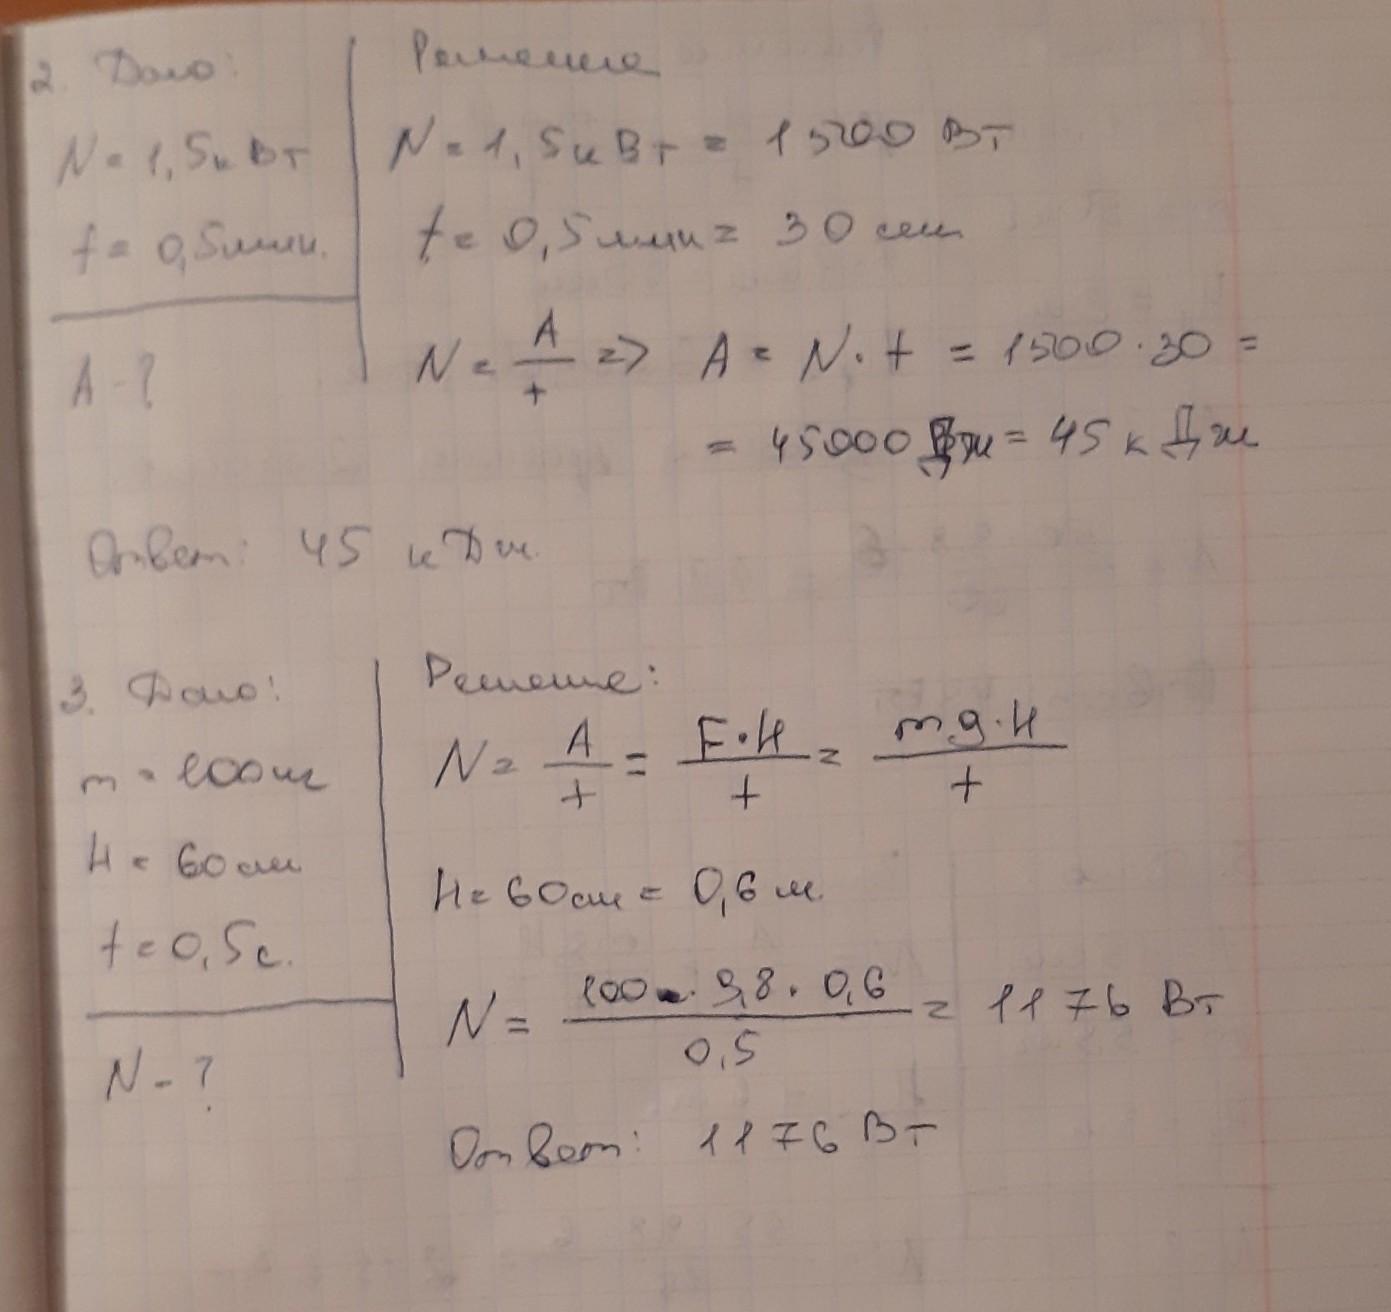 2. Дано:
N = 1,5кВт
t = 0,5мин.
A - ?
Решение
N = 1,5кВт = 1500 Вт
t = 0,5мин = 30 сек
N = A/t => A = N · t = 1500 · 30 =
= 45000 Дж = 45 кДж
Ответ: 45 кДж.
3. Дано:
m = 100кг
H = 60см
t = 0,5с.
N - ?
Решение:
N = A/t = F·H/t = mg·H/t
H = 60см = 0,6 м.
N = 100 · 9,8 · 0,6/0,5 = 1176 Вт
Ответ: 1176 Вт